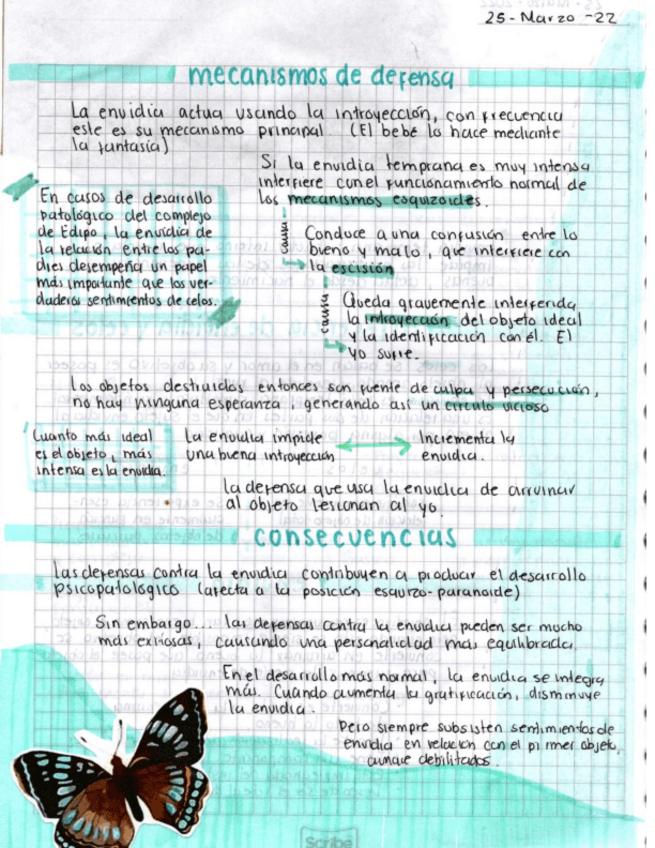 25 - Marzo - 22
mecanismos de defensa
La envidia actua usando la introyección, con frecuencia
este es su mecanismo principal. (El bebé lo hace mediante
la fantasía)
Si la envidia temprana es muy intensa
interfiere con el funcionamiento normal de
los mecanismos esquizoides.
En casos de desarrollo
patológico del complejo
de Edipo, la envidia de
la relación entre los pa-
dres desempeña un papel
más importante que los ver-
daderos sentimientos de celos.
causa
Conduce a una confusión entre lo
bueno y malo, que interfiere con
la escisión
causa
Queda gravemente interferida
la introyección del objeto ideal
y la identificación con él. El
yo sufre.
Los objetos destruidos entonces son fuente de culpa y persecución,
no hay ninguna esperanza, generando así un círculo vicioso
Cuanto más ideal
es el objeto, más
intensa es la envidia.
La envidia impide
una buena introyección
Incrementa la
envidia.
La defensa que usa la envidia de arruinar
al objeto lesionan al yo.
consecuencias
Las defensas contra la envidia contribuyen a producir el desarrollo
psicopatológico (afecta a la posición esquizo-paranoide)
Sin embargo... las defensas contra la envidia pueden ser mucho
más exitosas, causando una personalidad más equilibrada.
En el desarrollo más normal, la envidia se integra
más. Cuando aumenta la gratificación, disminuye
la envidia.
Pero siempre subsisten sentimientos de
envidia en relación con el primer objeto,
aunque debilitados.
Scribe